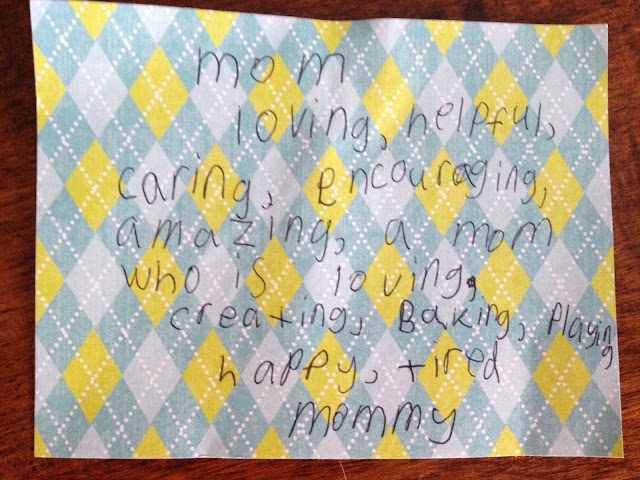 mom
loving, helpful,
caring, encouraging,
amazing, a mom
who is loving,
creating, Baking, Playing
happy, tired
mommy